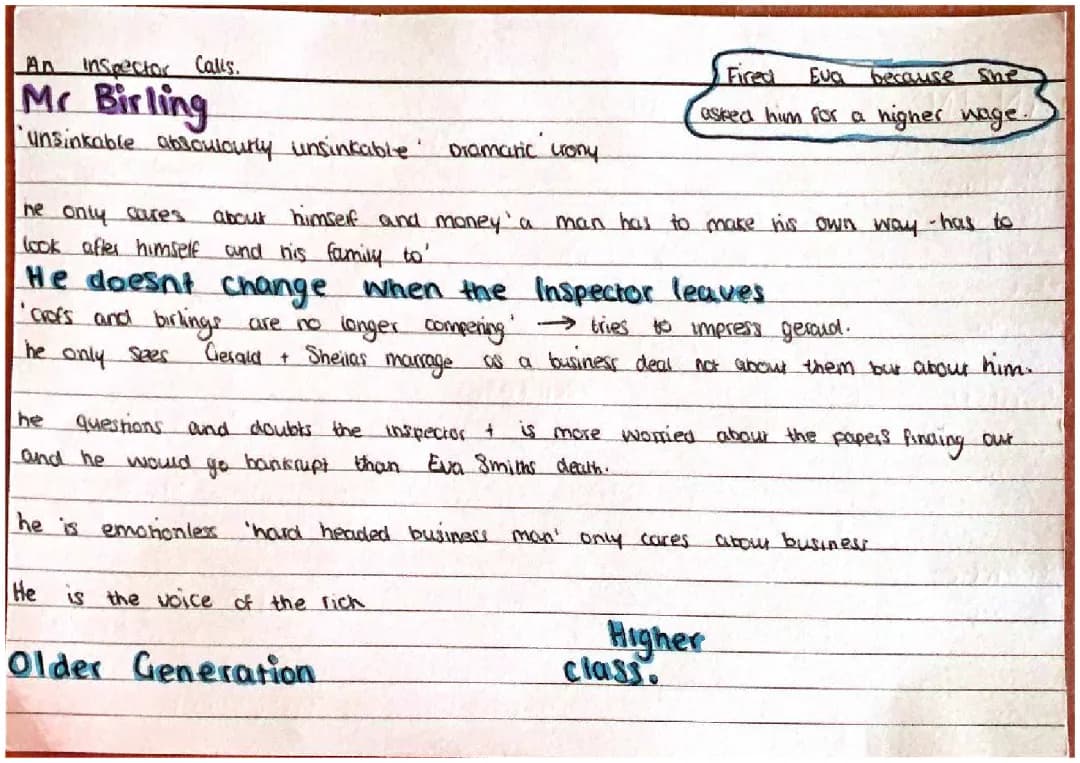 An Inspector Calls.
Fired Eva because she
asked him for a higher wage.
Mr Birling
'unsinkable absoulourtly unsinkable' Dramatic irony
he only cares about himself and money 'a man has to make his own way -has to
look after himself and his family to'
He doesnt change when the Inspector leaves
'Crofs and birlings are no longer competing' → tries to impress gerald.
he only sees Gerald + Sheilas marrage as a business deal not about them but about him.
he questions and doubts the inspector + is more worried about the papers finding out
and he would go bankrupt than Eva Smiths death.
he is emotionless 'hard headed business man' only cares about business
He is the voice of the rich
Higher
class.
Older Generation